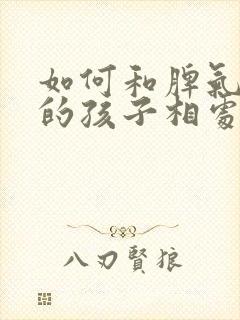 如何和脾氣
的孩子相處
八刃賢狼